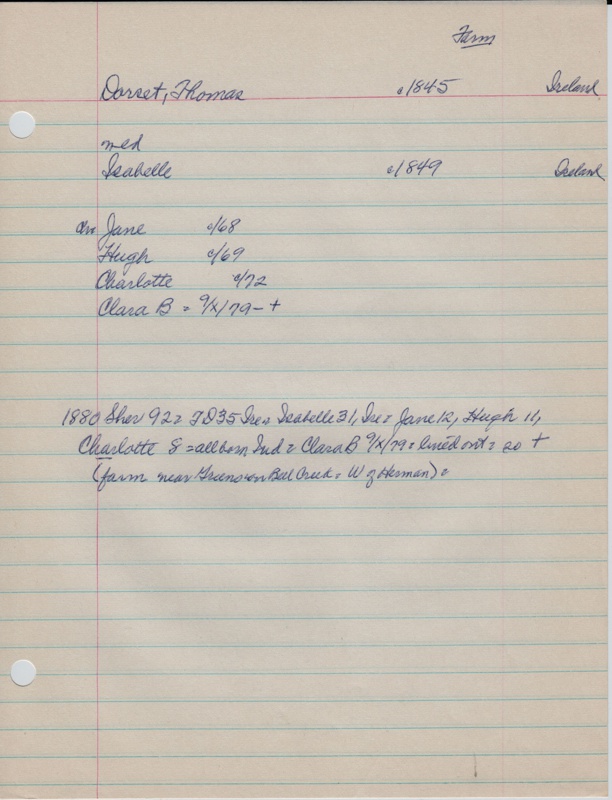 Farm
Dorset, Thomas c1845 Ireland
med
Isabelle c1849 Ireland
chr Jane c/68
Hugh c/69
Charlotte c/72
Clara B = 9/X/79 – +
1880 Sher 92 = TD35 Ire = Isabelle 31, Ire = Jane 12, Hugh 11,
Charlotte 8 = all born Ind = Clara B 9/X/79 = lined out = so +
(farm near Greens on Bell Creek = W of Herman) =